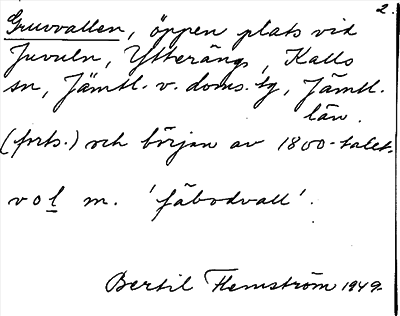 2.
Gruvvallen, öppen plats vid
Juvuln, Ytteräng, Kalls
sn, Jämtl. v. doms. tg, Jämtl.
län.
(forts.) och början av 1800-talet.
vol m. 'fäbodvall'.
Bertil Flemström 1949.